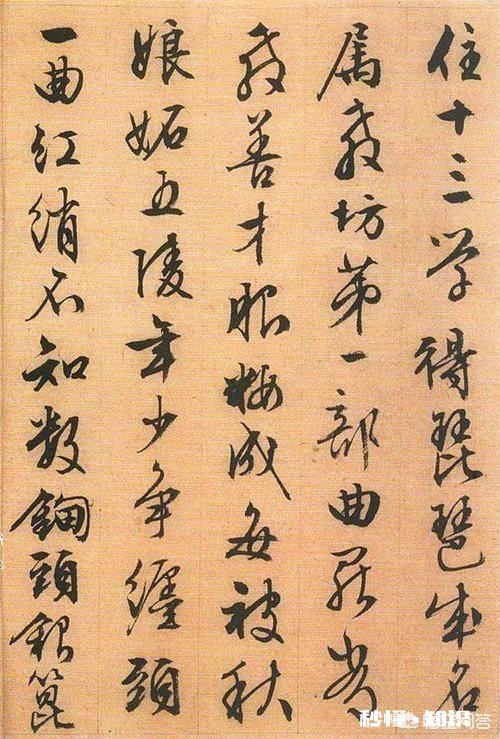 住十三学得琵琶成名
属教坊第一部曲罷常
教善才服粧成每被秋
娘妬五陵年少争纏頭
一曲红绡不知数鈿頭银篦
秒懂·知识